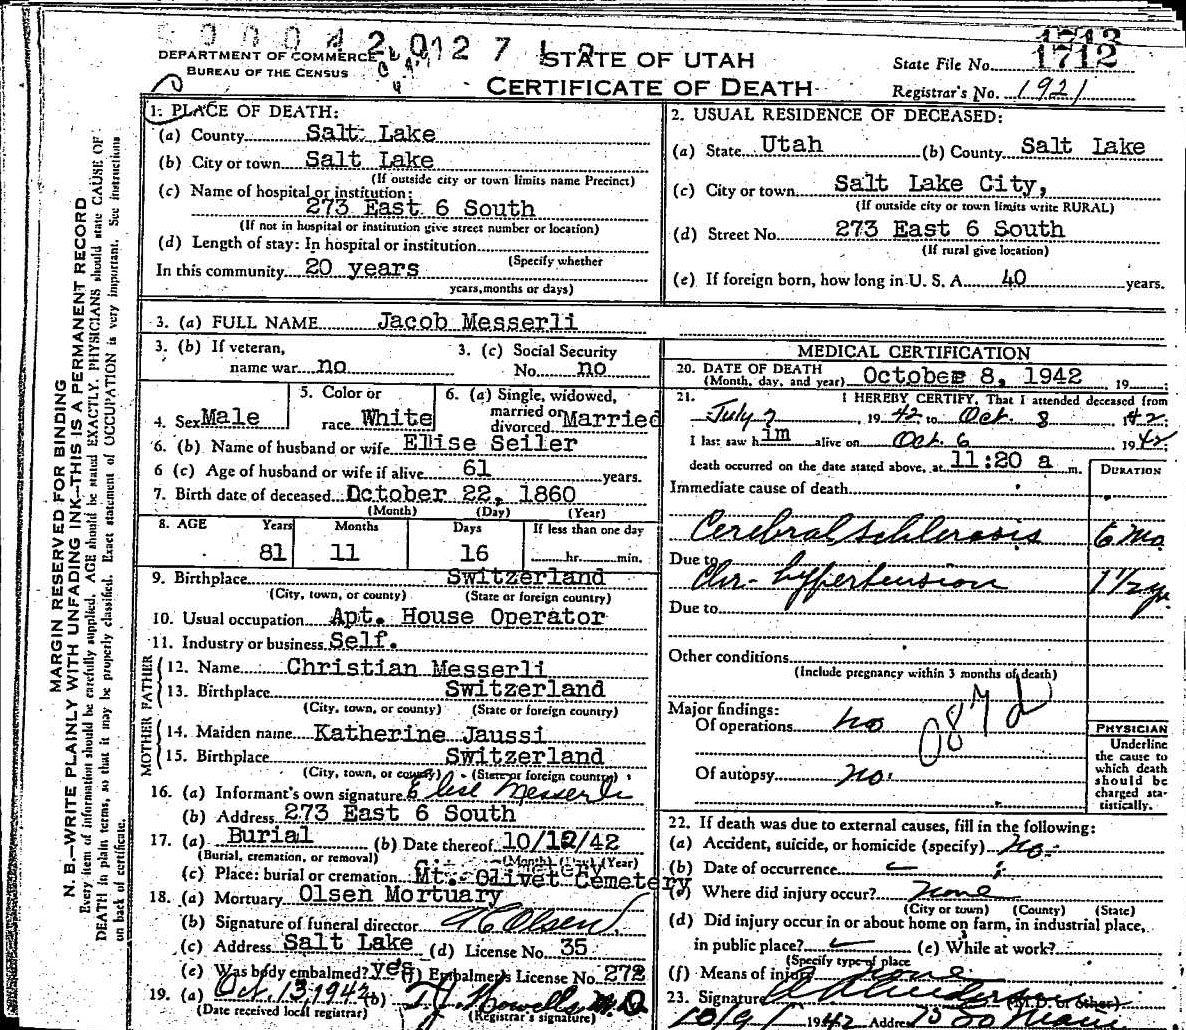 DEPARTMENT OF COMMERCE
BUREAU OF THE CENSUS
STATE OF UTAH
CERTIFICATE OF DEATH
State File No. 1712
Registrar's No. 1921
MARGIN RESERVED FOR BINDING
N. B.—WRITE PLAINLY WITH UNFADING INK—THIS IS A PERMANENT RECORD
Every item of information should be carefully supplied. AGE should be stated EXACTLY. PHYSICIANS should state CAUSE OF
DEATH in plain terms, so that it may be properly classified. Exact statement of OCCUPATION is very important. See instructions
on back of certificate.
1. PLACE OF DEATH:
(a) County Salt Lake
(b) City or town Salt Lake
(If outside city or town limits name Precinct)
(c) Name of hospital or institution:
273 East 6 South
(If not in hospital or institution give street number or location)
(d) Length of stay: In hospital or institution
(Specify whether
In this community 20 years
years, months or days)
2. USUAL RESIDENCE OF DECEASED:
(a) State Utah (b) County Salt Lake
(c) City or town Salt Lake City,
(If outside city or town limits write RURAL)
(d) Street No. 273 East 6 South
(If rural give location)
(e) If foreign born, how long in U. S. A. 40 years.
3. (a) FULL NAME Jacob Messerli
3. (b) If veteran,
name war no
3. (c) Social Security
No. no
4. Sex Male
5. Color or
race White
6. (a) Single, widowed,
married or
divorced Married
6. (b) Name of husband or wife Elise Seiler
6 (c) Age of husband or wife if alive 61 years.
7. Birth date of deceased October 22, 1860
(Month) (Day) (Year)
8. AGE Years Months Days If less than one day
81 11 16 hr. min.
9. Birthplace Switzerland
(City, town, or county) (State or foreign country)
10. Usual occupation Apt. House Operator
11. Industry or business Self.
FATHER
12. Name Christian Messerli
13. Birthplace Switzerland
(City, town, or county) (State or foreign country)
MOTHER
14. Maiden name Katherine Jaussi
15. Birthplace Switzerland
(City, town, or county) (State or foreign country)
16. (a) Informant's own signature Elise Messerli
(b) Address 273 East 6 South
17. (a) Burial (b) Date thereof 10/12/42
(Burial, cremation, or removal) (Month) (Day) (Year)
(c) Place: burial or cremation Mt. Olivet Cemetery
18. (a) Mortuary Olsen Mortuary
(b) Signature of funeral director Olsen
(c) Address Salt Lake (d) License No. 35
(e) Was body embalmed? yes (f) Embalmer's License No. 272
19. (a) Oct. 13, 1942 (b) T. J. Howells M.D
(Date received local registrar) (Registrar's signature)
MEDICAL CERTIFICATION
20. DATE OF DEATH
(Month, day, and year) October 8, 1942 19
21. I HEREBY CERTIFY, That I attended deceased from
July 7 1942 to Oct. 8 42
I last saw him alive on Oct. 6 1942
death occurred on the date stated above, at 11:20 a m.
DURATION
Immediate cause of death
Cerebral Schlerosis 6 Mo.
Due to Chr- hypertension 1 1/2 yr.
Due to
Other conditions
(Include pregnancy within 3 months of death)
Major findings:
Of operations no
087d
Of autopsy no.
PHYSICIAN
Underline
the cause to
which death
should be
charged sta-
tistically.
22. If death was due to external causes, fill in the following:
(a) Accident, suicide, or homicide (specify) no-
(b) Date of occurrence
(c) Where did injury occur? none
(City or town) (County) (State)
(d) Did injury occur in or about home on farm, in industrial place,
in public place? (e) While at work?
(Specify type of place
(f) Means of injury none
23. Signature (M. D. or other)
10/9/ 1942 Address 75 So Main